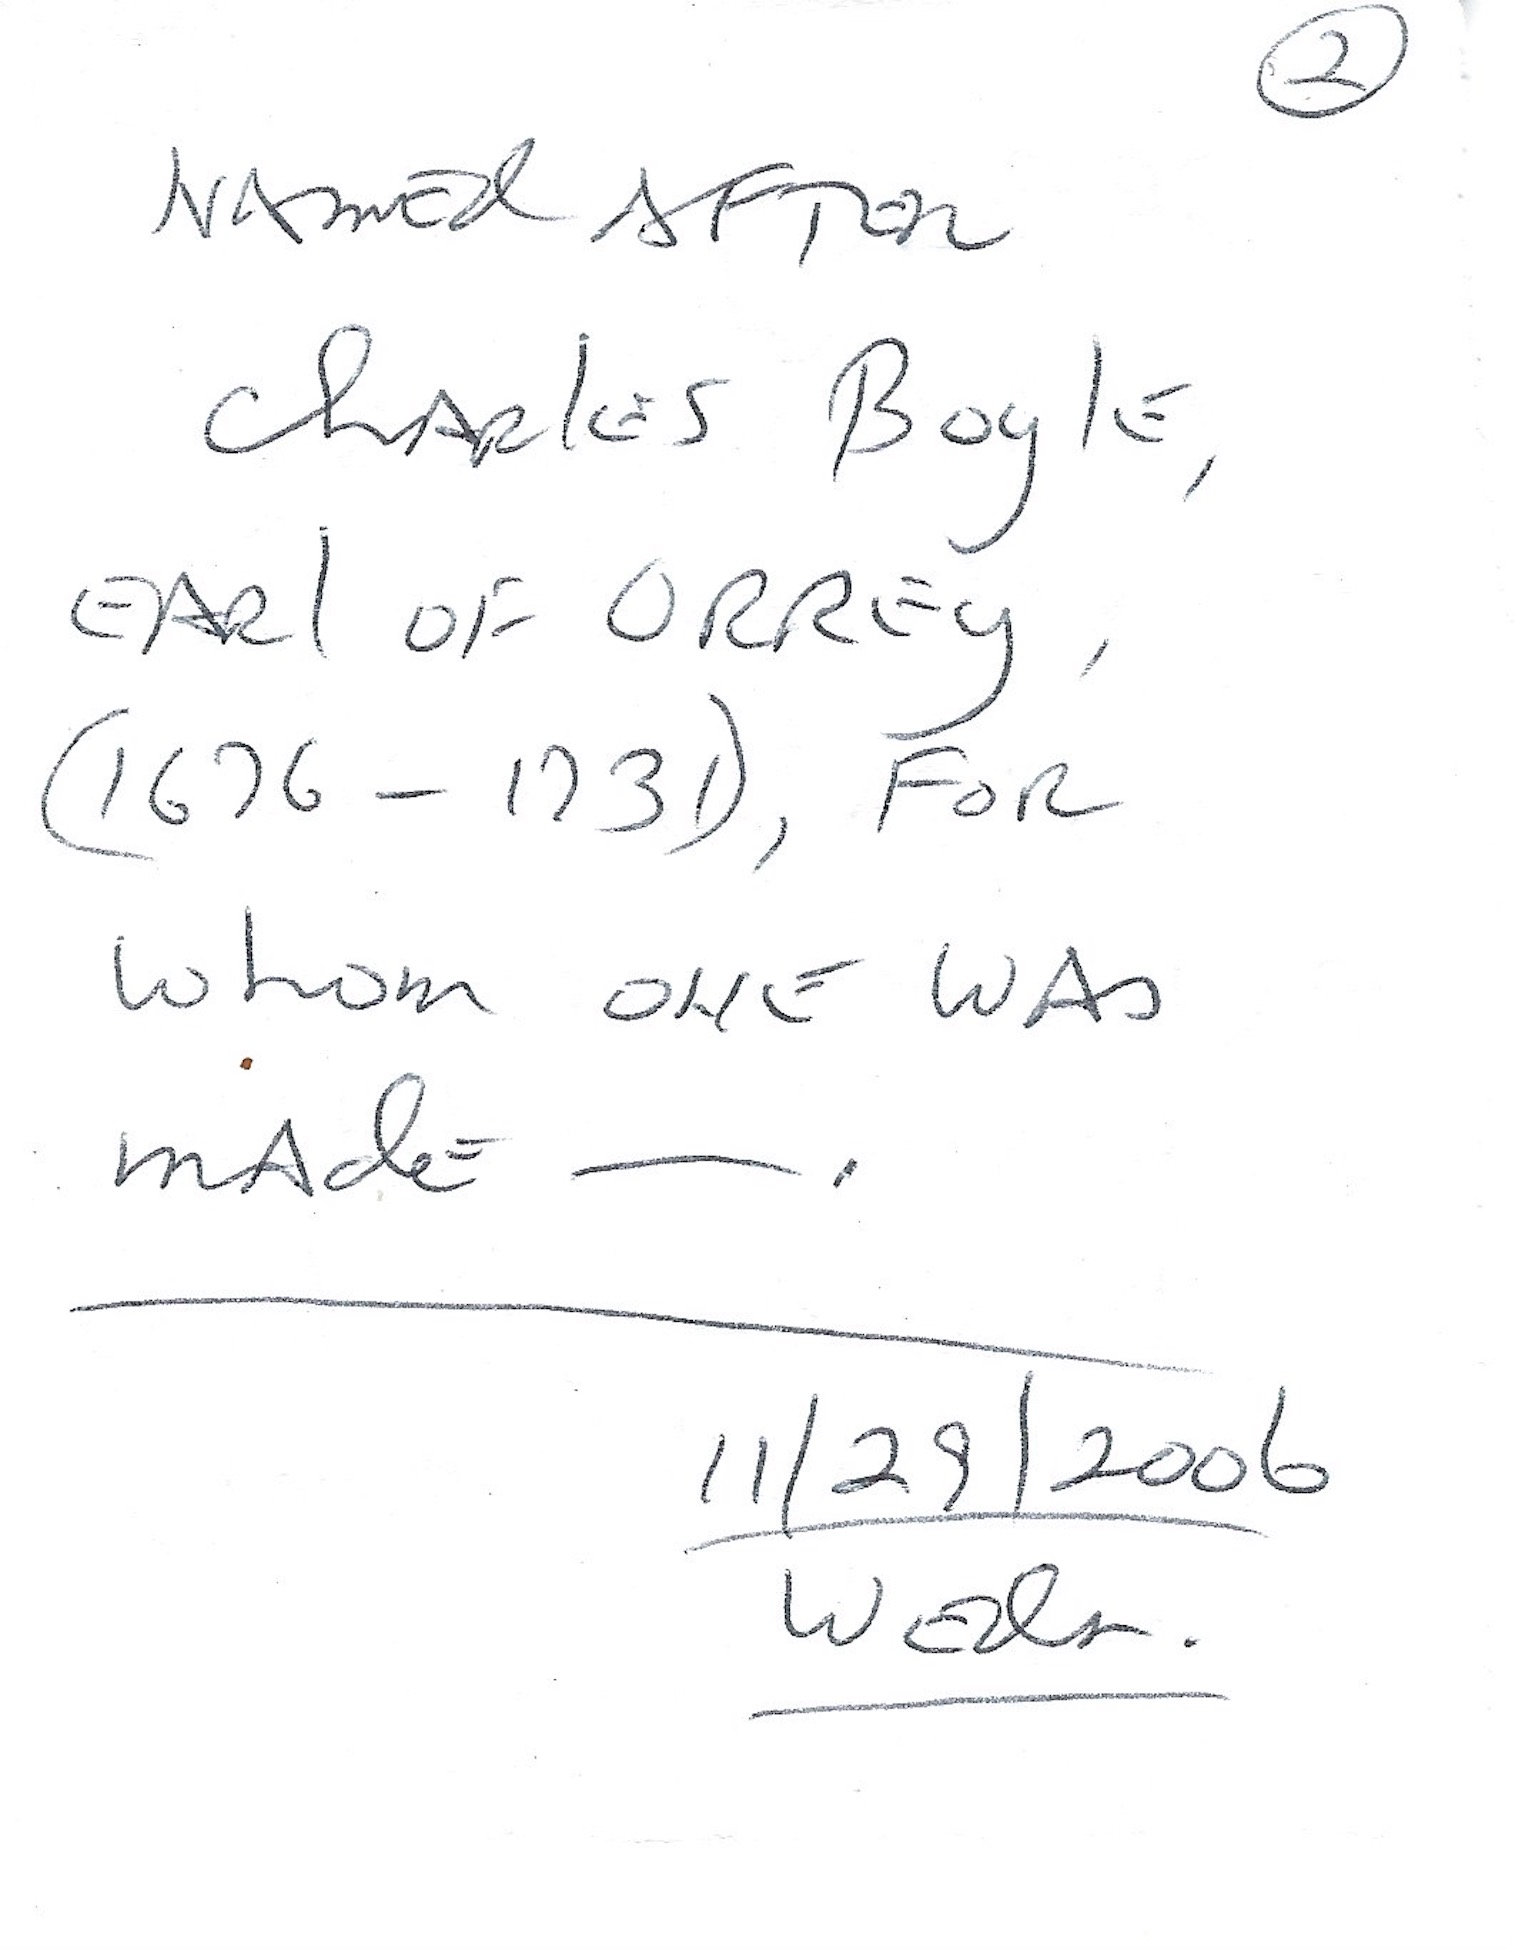 2
NAMEd AFTER
ChARlES BoylE,
EARl OF ORREy,
(1676 - 1731), FOR
whom ONE WAS
mAdE —.
11/29/2006
WEdn.